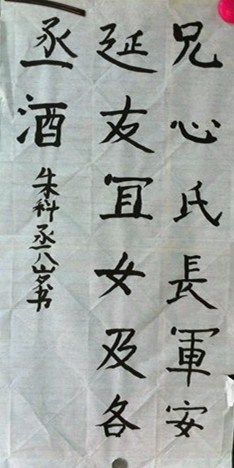 兄心氏長軍安
延友宜女及各
丞酒
朱科丞八山名书